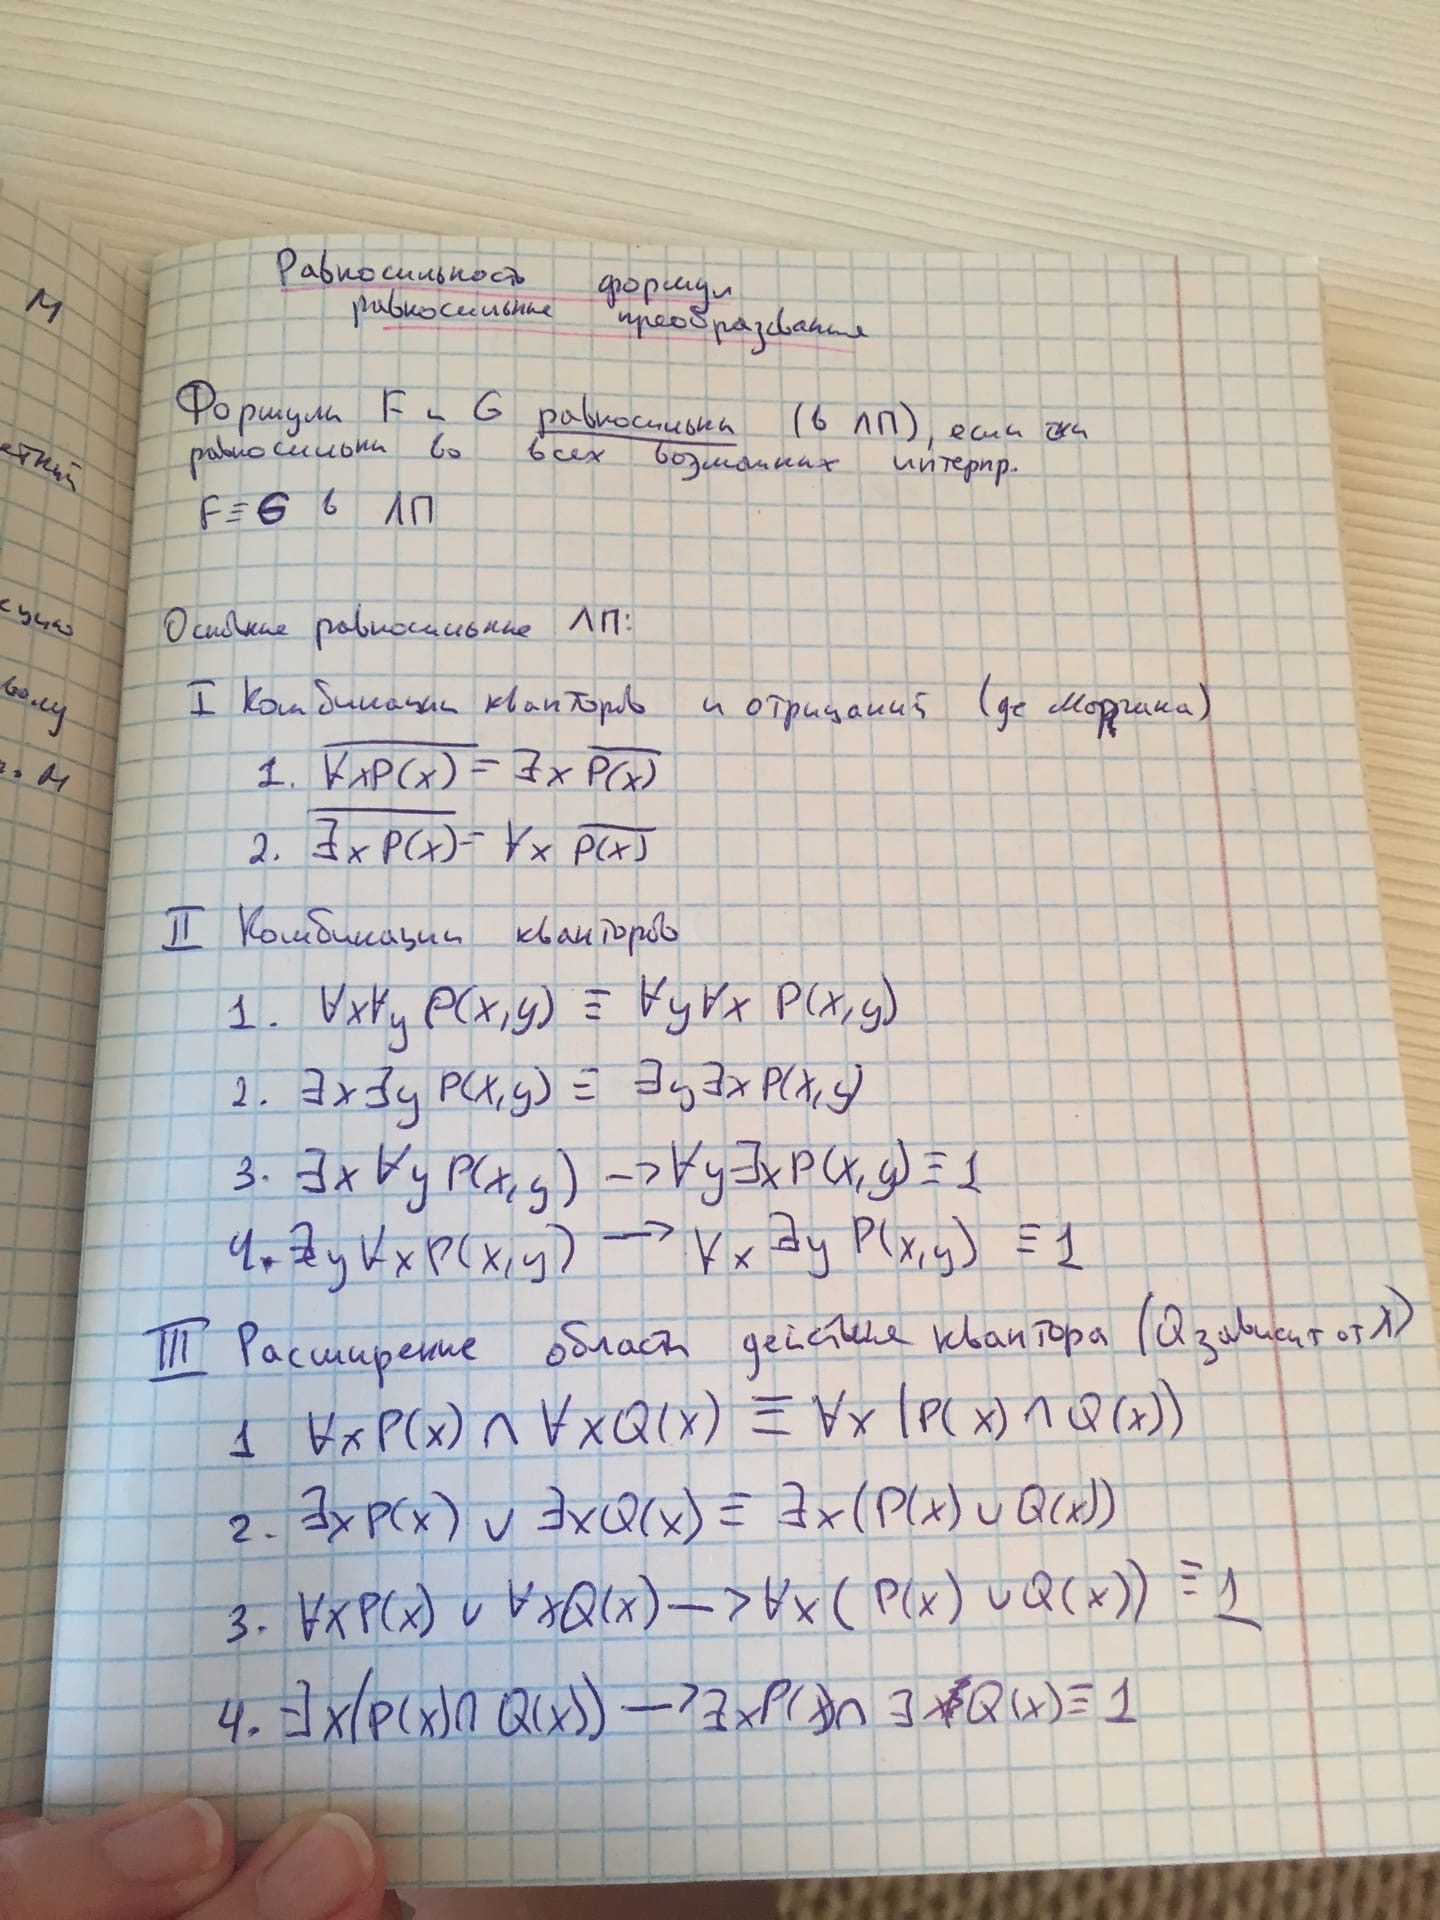 Равносильность формул
равносильные преобразования
Формулы F и G равносильны (в ЛП), если они
равносильны во всех возможных интерпр.
F≡G в ЛП
Основные равносильные ЛП:
I Комбинации кванторов и отрицаний (де Моргана)
1. \overline{∀xP(x)} = ∃x \overline{P(x)}
2. \overline{∃xP(x)} = ∀x \overline{P(x)}
II Комбинации кванторов
1. ∀x∀y P(x,y) ≡ ∀y∀x P(x,y)
2. ∃x∃y P(x,y) ≡ ∃y∃x P(x,y)
3. ∃x∀y P(x,y) -> ∀y∃x P(x,y) ≡ 1
4. ∃y∀x P(x,y) -> ∀x∃y P(x,y) ≡ 1
III Расширение область действия квантора (Q зависит от x)
1 ∀xP(x) ∩ ∀xQ(x) ≡ ∀x (P(x) ∩ Q(x))
2. ∃xP(x) ∪ ∃xQ(x) ≡ ∃x(P(x) ∪ Q(x))
3. ∀xP(x) ∪ ∀xQ(x) -> ∀x(P(x) ∪ Q(x)) ≡ 1
4. ∃x(P(x) ∩ Q(x)) -> ∃xP(x) ∩ ∃xQ(x) ≡ 1
М